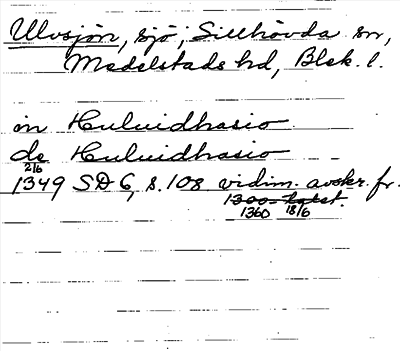 Ulvsjön, sjö, Sillhövda sn,
Medelstads hd, Blek. l.
in Huluidhasio
de Huluidhasio
2/6
1349 SD 6, s. 108 vidim. avskr. fr.
1300-talet.
1360 18/6